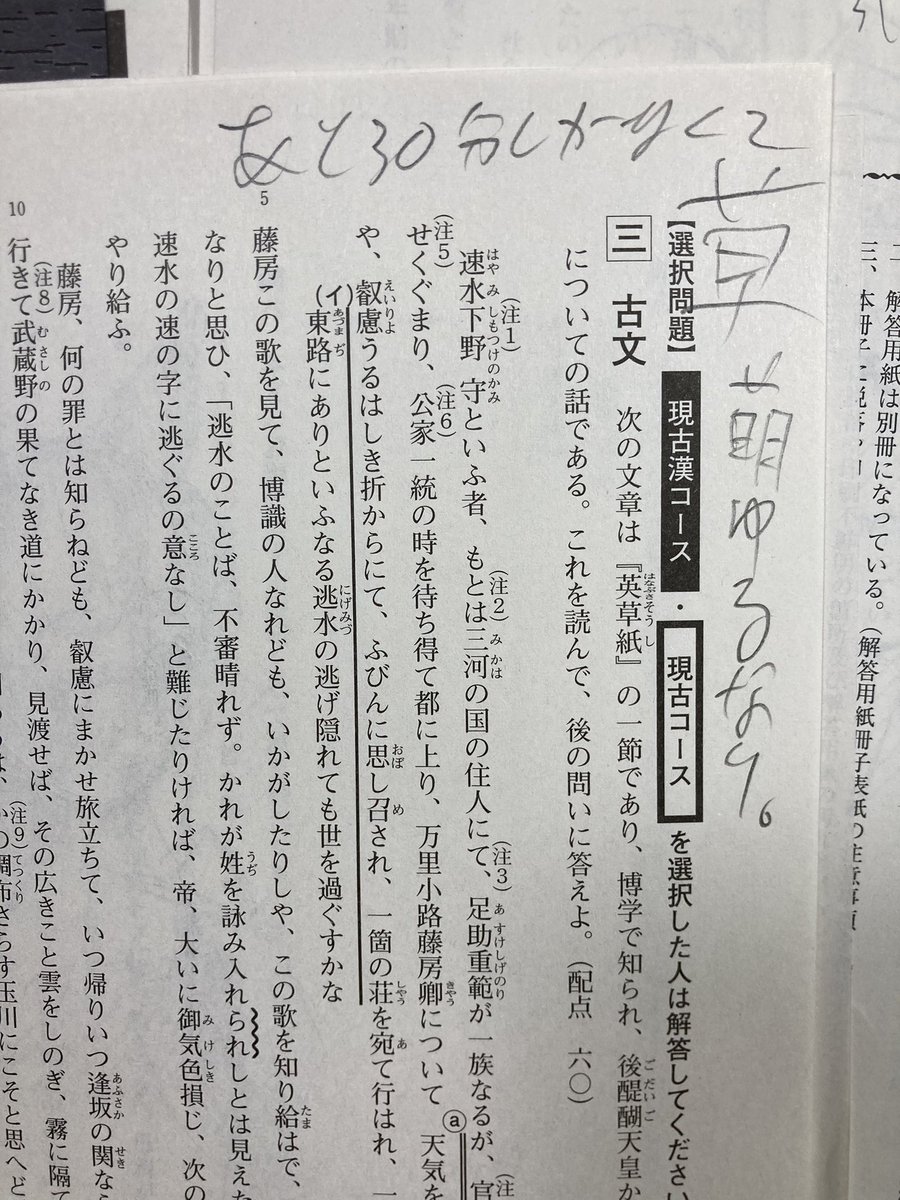 解答用紙は別冊になっている。(解答用紙冊子表紙の注意事項
三、本冊子に脱落や
あと30分しかなくて
草 萌ゆるなり。
【選択問題】 現古漢コース・現古コース を選択した人は解答してください
はなぶさそうし ごだいご
三 古文 次の文章は『英草紙』の一節であり、博学で知られ、後醍醐天皇か
についての話である。これを読んで、後の問いに答えよ。(配点 六〇)
(注1) (注2) (注3) (注
はやみしもつけのかみ みかは あすけしげのり
速水下野守といふ者、もとは三河の国の住人にて、足助重範が一族なるが、官
(注5) (注6)
きやう ⓐ
せくぐまり、公家一統の時を待ち得て都に上り、万里小路藤房卿について 天気を
えいりよ おぼ め しやう あ
や、叡慮うるはしき折からにて、ふびんに思し召され、一箇の荘を宛て行はれ、一
(イ)あづまぢ にげみづ
東路にありといふなる逃水の逃げ隠れても世を過ぐすかな
5 たま
藤房この歌を見て、博識の人なれども、いかがしたりしや、この歌を知り給はで、
うぢ
なりと思ひ、「逃水のことば、不審晴れず。かれが姓を詠み入れられしとは見えた
こころ みけしき
速水の速の字に逃ぐるの意なし」と難じたりければ、帝、大いに御気色損じ、次の
やり給ふ。
あふさか せき
藤房、何の罪とは知らねども、叡慮にまかせ旅立ちて、いつ帰りいつ逢坂の関な
10 (注8) むさしの
行きて武蔵野の果てなき道にかかり、見渡せば、その広きこと雲をしのぎ、霧に隔
(注9)てつくり
の調布さらす玉川にこそと思へど